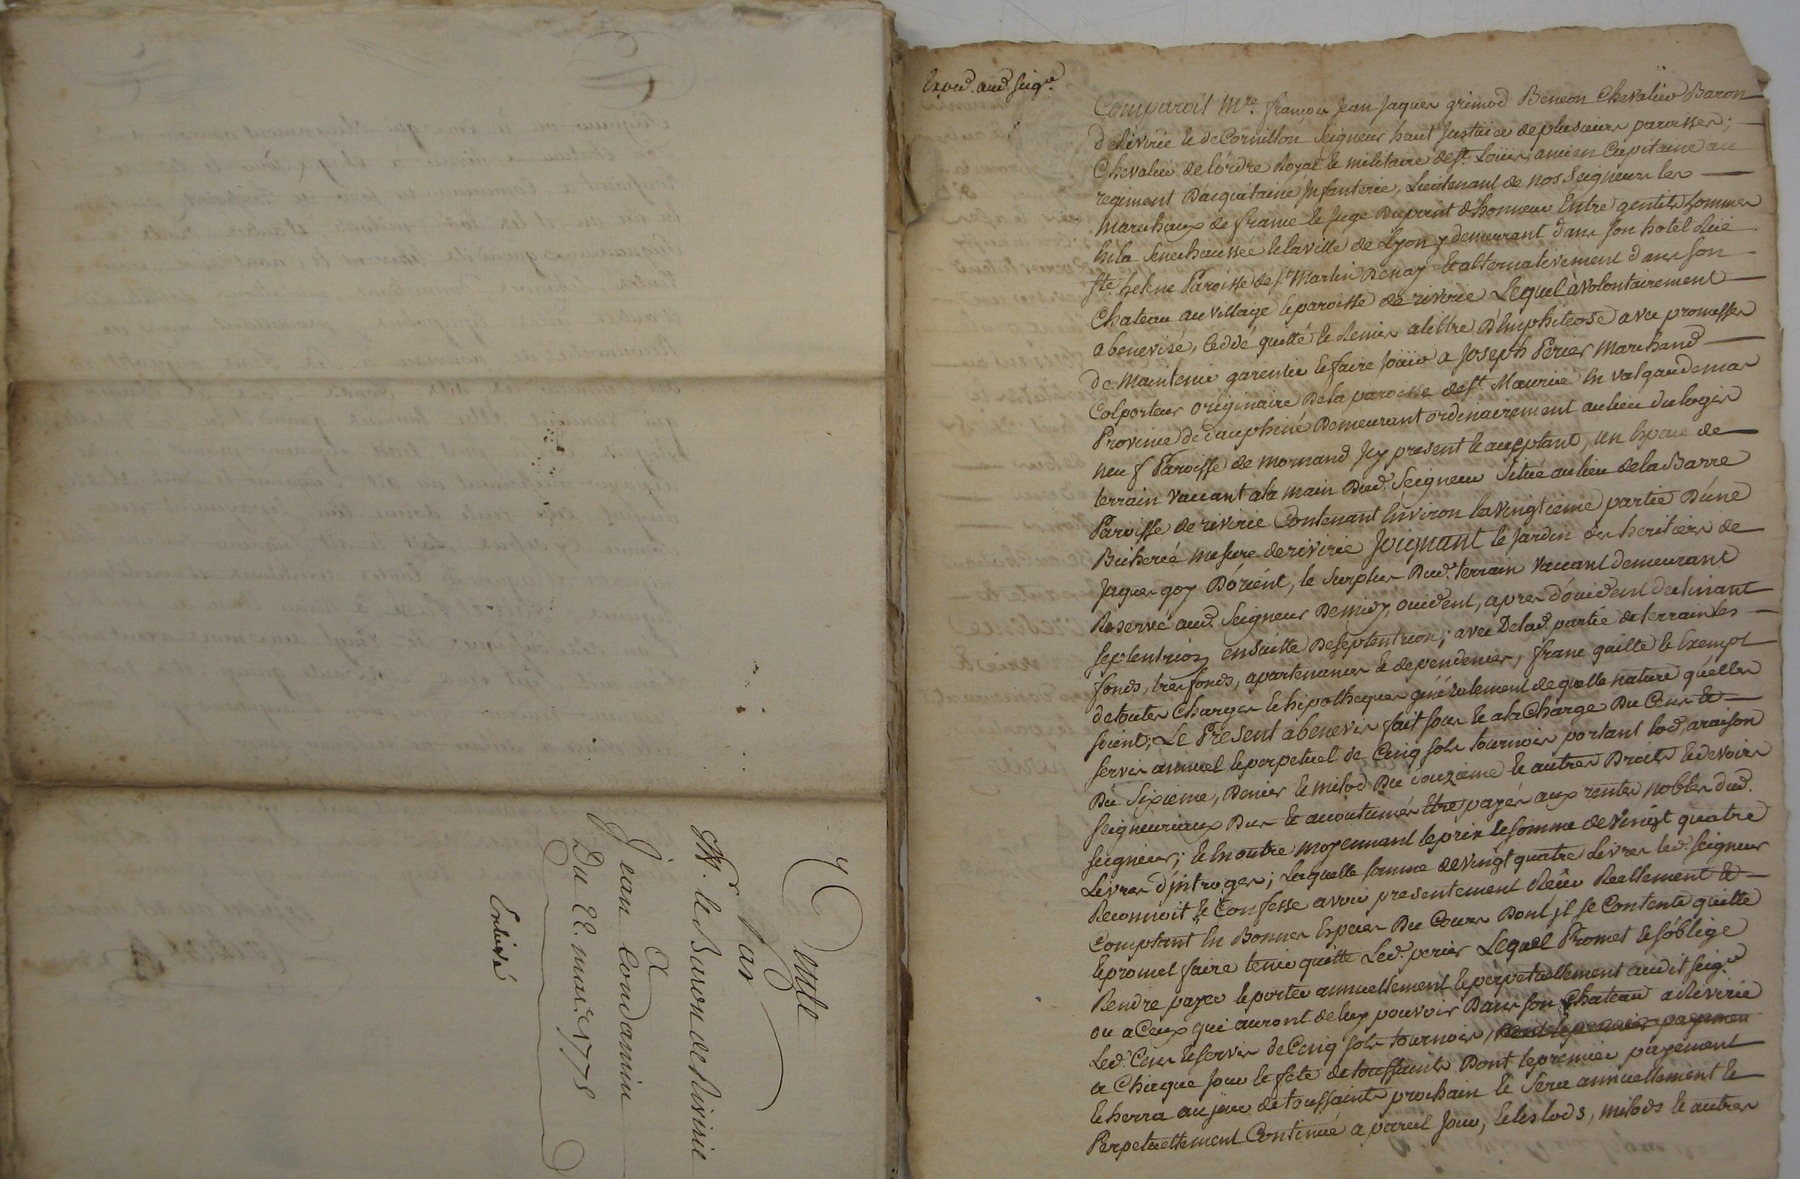 Vente
Par
Mr. le Baron de Rivirie
a
Jean Condamin
Du 22. mars 1778
Enlivré
Expéd. aud. Seigr.
Comparoit Mre. françois Jean Jaques grimod Beneon Chevalier Baron
de Rivirie & de Cornillon Seigneur haut Justicier de plusieurs paroisses;
Chevalier de lordre Royal & militaire de st. Loüis, ancien Capitaine au
regiment Dacquitaine Infanterie, Lieutenant de nos Seigneurs les
marechaux de france & Juge Du point dhonneur Entre gentils hommes
En la Senechaussée & la ville de Lyon y demeurant dans son hotel Rüe
ste. helene Paroisse de st. Martin Denay & alternativement dans son
Chateau au village & paroisse de riverie Lequel à volontairement
abenevisé, Ceddé quitté & Remis a titre D'Emphiteose avec promesse
de Maintenir garentir & faire Joüir a Joseph Périer Marchand
Colporteur originaire De la paroisse de st. Maurice En valgaudemar
Province de dauphiné Demeurant ordinairement au lieu du logis
neuf Paroisse de mornand Icy present & acceptant, un Espace de
terrain vaccant a la main Dud. Seigneur Situé au lieu de la Barre
Paroisse de rivirie Contenant Environ la vingtieme partie D'une
Bicherée mesure de rivirie Joignant le Jardin des heritiers de
Jaques goy D'orient, le Surplus Dud. terrain vaccant demeurant
Reservé aud. Seigneur De midy, occident, apres d'occident declinant
septentrion ensuitte De septentrion; avec De lad. partie de terrain les
fonds, tres fonds, apartenances & dependences, franc quitte & Exempt
de toutes Charges & hipotheques généralement de quelle nature quelles
soient; Le Présent abenevis fait sous & a la Charge Du Cens &
servis annuel & perpetuel de Cinq sols tournois portant lod, a raison
Du Sixieme, Denier & milod Du douzieme & autres Droits & devoirs
Seigneuriaux Dus & accoutumés Etre payés aux rentes nobles dud.
Seigneur; & En outre moyennant le prix & somme de vingt quatre
Livres d'introges; Laquelle somme de vingt quatre Livres led. Seigneur
Reconnoit & Confesse avoir presentement Reçu Réellement &
Comptant En Bonnes Especes Du Cours Dont il se Contente quitte
& promet faire tenir quitte Led. perier Lequel Promet & s'oblige
Rendre payer & porter annuellement & perpetuellement audit Seigr.
ou a Ceux qui auront de luy pouvoir Dans son Chateau a Riverie
Led. Cens & servis de Cinq sols tournois, dont le premier paymen
a Chaque Jour & fete de toussaints Dont le premier payement
Echerra au jour de toussaints prochain & sera annuellement &
Perpetuellement Continué a pareil Jour, & les lods, milods & autres